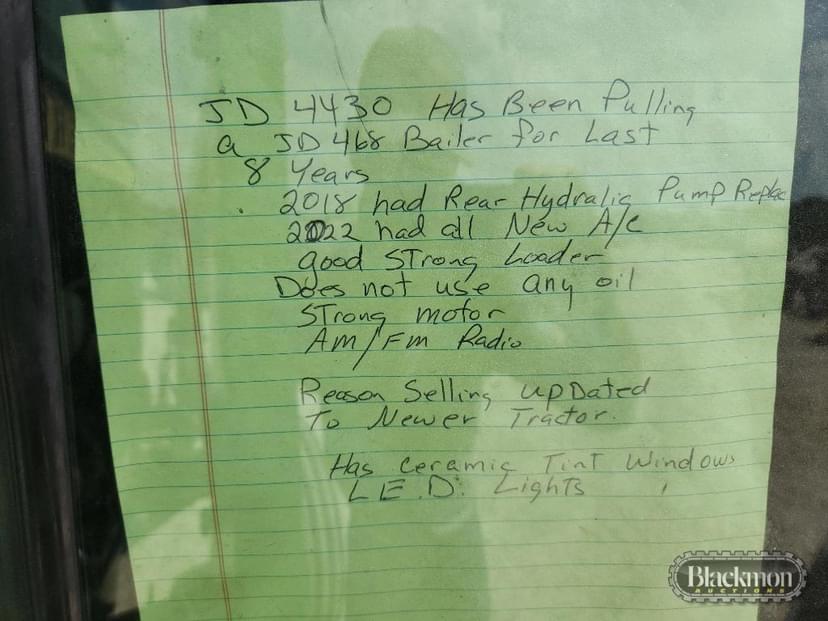 JD 4430 Has Been Pulling
a JD 468 Bailer for Last
8 Years
2018 had Rear Hydralic Pump Replac
2022 had all New A/C
good STrong Loader
Does not use any oil
STrong motor
Am/Fm Radio
Reason Selling upDated
To Newer Tractor.
Has ceramic Tint Windows
L.E.D. Lights
Blackmon
AUCTIONS